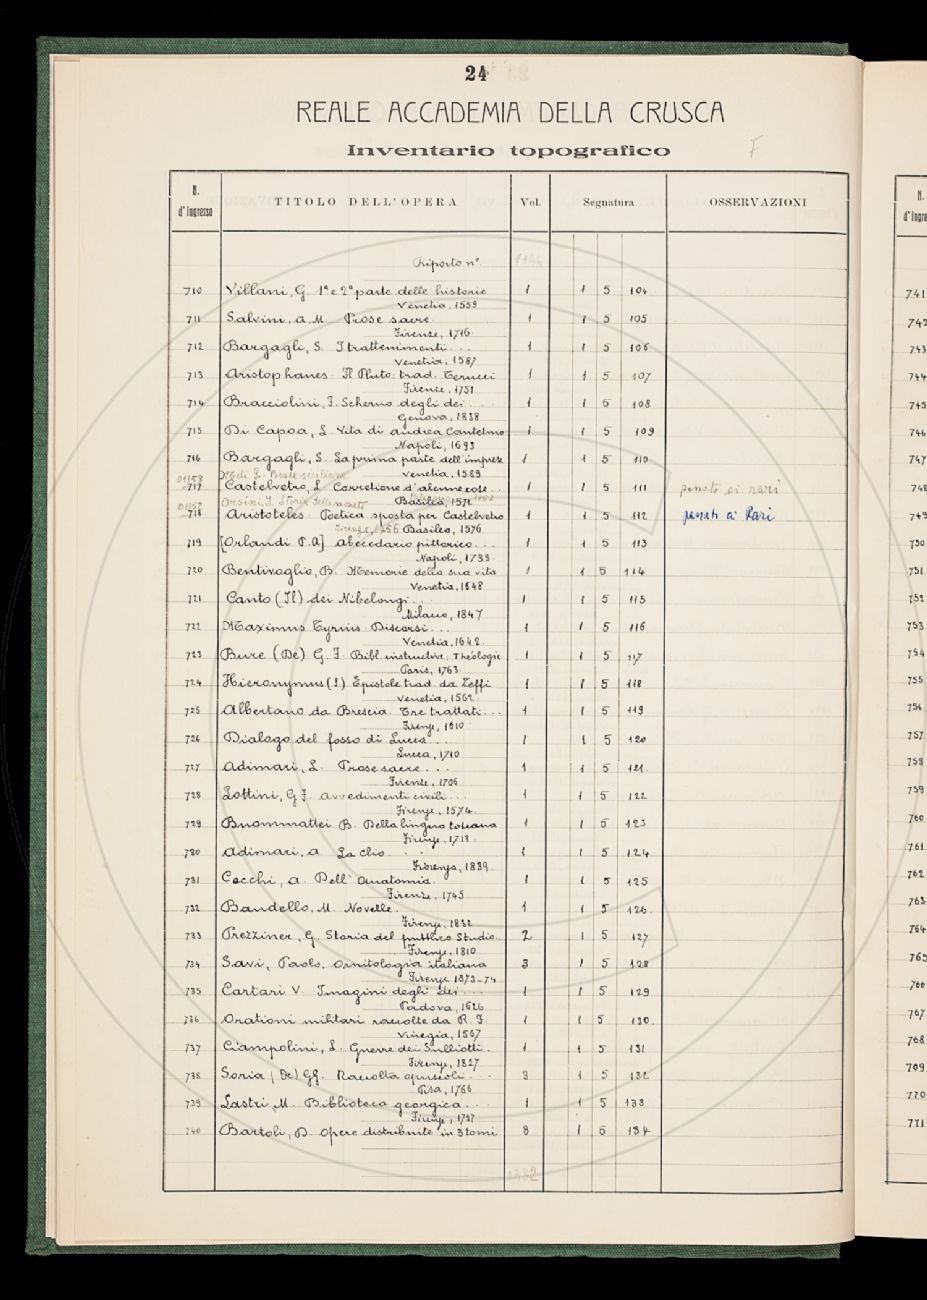 24
REALE ACCADEMIA DELLA CRUSCA
Inventario topografico
F
N. d'Ingresso TITOLO DELL'OPERA Vol. Segnatura OSSERVAZIONI
Riporto n°. 1344
710 Villani, G. 1ª e 2ª parte delle historie 1 1 5 104
Venetia, 1559
711 Salvini, A. M. Prose sacre 1 1 5 105
Firenze, 1716.
712 Bargagli, S. I trattenimenti... 1 1 5 106
Venetia, 1587
713 Aristophanes. Il Pluto: trad. Terucci 1 1 5 107
Firenze, 1751
714 Bracciolini, F. Scherno degli dei.... 1 1 5 108
Genova, 1838
715 Di Capoa, L. Vita di Andrea Cantelmo 1 1 5 109
Napoli, 1693
716 Bargagli, S. La prima parte dell'imprese 1 1 5 110
Venetia, 1589
01158
717 Castelvetro, L. Correttione d'alcune cose... 1 1 5 111 passato ai rari
Basilea, 1572
01157 Orsini, I. Storia delle monete
718 Aristoteles. Poetica sposta per Castelvetro 1 1 5 112 passato ai Rari
Firenze, 1756 Basilea, 1576
719 [Orlandi P.A.] Abecedario pittorico... 1 1 5 113
Napoli, 1733
720 Bentivoglio, B. Memorie della sua vita 1 1 5 114
Venetia, 1648
721 Canto (Il) dei Nibelongi... 1 1 5 115
Milano, 1847
722 Maximus Tyrius. Discorsi... 1 1 5 116
Venetia, 1642.
723 Bure (De) G. F. Bibl. instructive. Théologie 1 1 5 117
Paris, 1763.
724 Hieronymus (S.) Epistole trad. da Zeffi 1 1 5 118
Venetia, 1562.
725 Albertano da Brescia. Tre trattati... 1 1 5 119
Firenze, 1610
726 Dialogo del fosso di Lucca... 1 1 5 120
Lucca, 1710
727 Adimari, L. Prose sacre... 1 1 5 121.
Firenze, 1706
728 Lottini, G. F. Avvedimenti civili... 1 1 5 122
Firenze, 1574.
729 Buommattei B. Della lingua toscana 1 1 5 123
Firenze, 1713.
730 Adimari, A. La Clio. 1 1 5 124
Firenze, 1639.
731 Cocchi, A. Dell'Anatomia. 1 1 5 125
Firenze, 1745
732 Bandello, M. Novelle. 1 1 5 126.
Firenze, 1832
733 Prezziner, G. Storia del pubblico Studio.. 2 1 5 127
Firenze, 1810
734 Savi, Paolo. Ornitologia italiana 3 1 5 128
Firenze 1873-74
735 Cartari V. Imagini degli Dei... 1 1 5 129
Padova, 1626
736 Orationi militari raccolte da R. F. 1 1 5 130.
Vinegia, 1557
737 Ciampolini, L. Guerre dei Sulliotti. 1 1 5 131
Firenze, 1827
738 Soria (De) GG. Raccolta opuscoli... 3 1 5 132
Pisa, 1766
739 Lastri, M. Biblioteca georgica.... 1 1 5 133
Firenze, 1787
740 Bartoli, D. Opere distribuite in 3 tomi 8 1 5 134
1382
N. d'Ingre
741
742
743
744
745
746
747
748
749
750
751
752
753
754
755
756
757
758
759
760
761
762
763
764
765
766
767
768
769
770
771